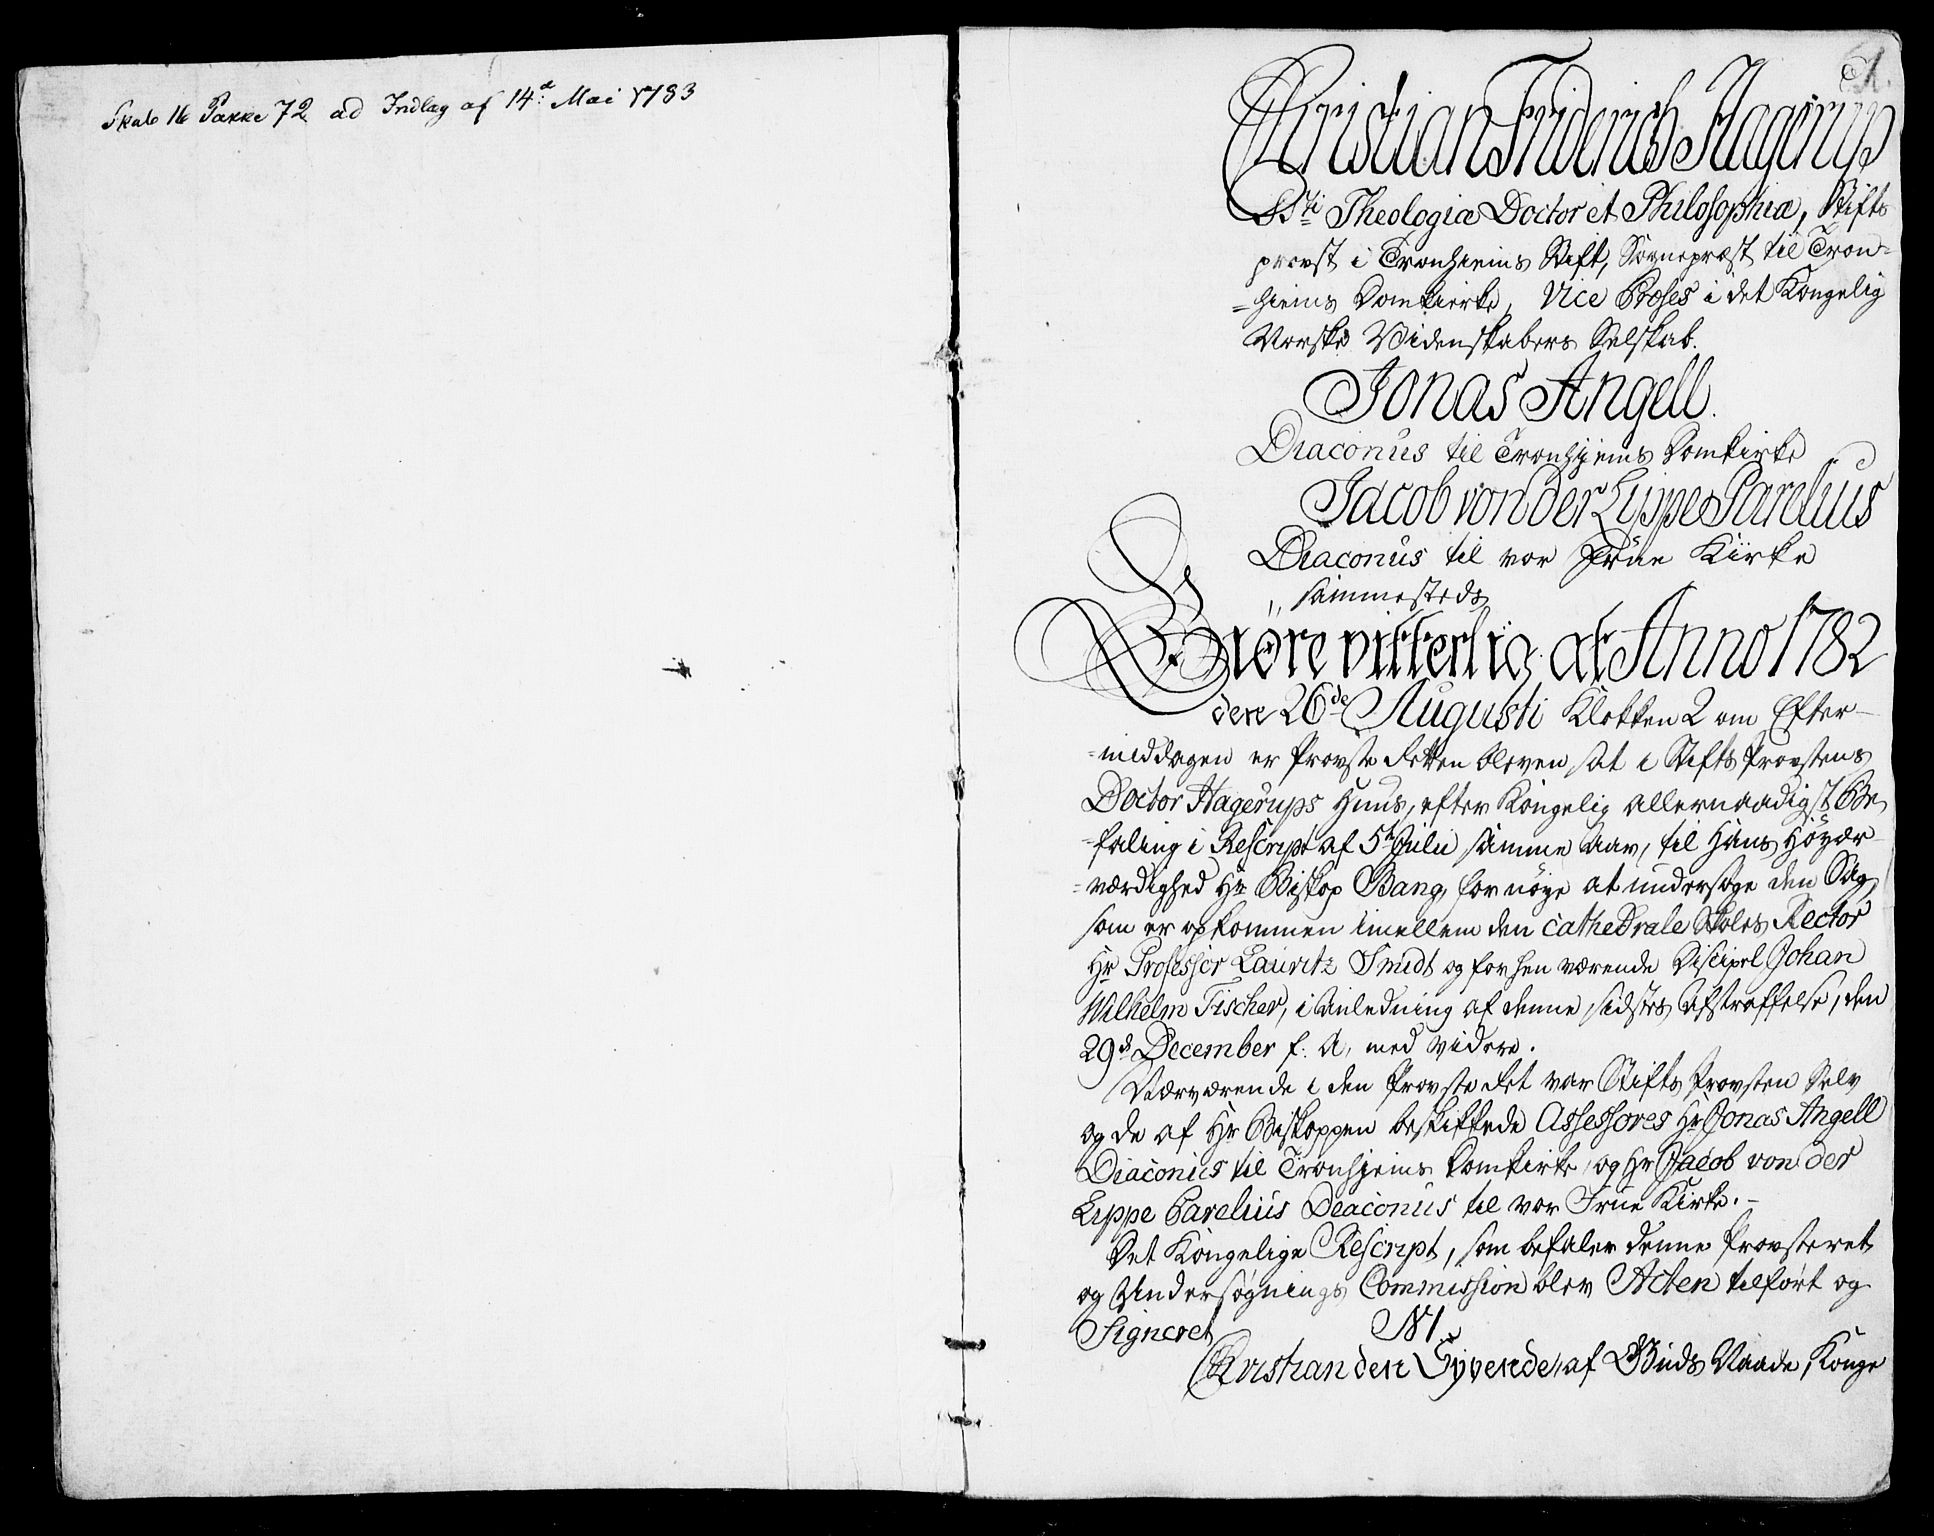 Skab 16 Pakke 72 ad Indlæg af 14de Mai 1783
1.
Christian Friderich Hagerup
SSti Theologiæ Doctor et Philosophiæ, Stifts
provst i Tronhiems Stift, Sognepræst til Tron-
=hiems Domkierke, Vice Præses i det Kongelig
Norske Videnskabers Selskab.
Jonas Angell.
Diaconus til Tronhjems Domkirke
Jacob von der Lippe Parelius
Diaconus til vor Frue Kirke
sammesteds
Giøre vitterlig at Anno 1782
den 26de Augusti Klokken 2 om Efter-
=middagen er Provste Retten bleven sat i Stifts Provstens
Doctor Hagerups Huus, efter Kongelig allernaadigst Be
=faling i Rescript af 5te Julii samme Aar, til Hans Høyær-
=værdighed Hr Biskop Bang, for nøye at undersøge den Sag,
som er opkommen imellem den Cathedrale Skoles Rector
Hr Professor Lauritz Smidt og forhen værende Discipel Johan
Wilhelm Fischer, i Anledning af denne sidstes Afstraffelse, den
29de December f. A. med videre.
Nærværende i den Provste Ret var Stifts Provsten Selv
og de af Hr Biskoppen beskikkede Assessores Hr Jonas Angell
Diaconus til Tronhjems Domkirke, og Hr Jacob von der
Lippe Parelius Diaconus til vor Frue Kirke.-
Det Kongelige Rescript, som befaler denne Provsteret
og Undersøgnings Commission blev Acten tilført og
Signeret N 1.
Christian den Syvende, af Guds Naade, Konge